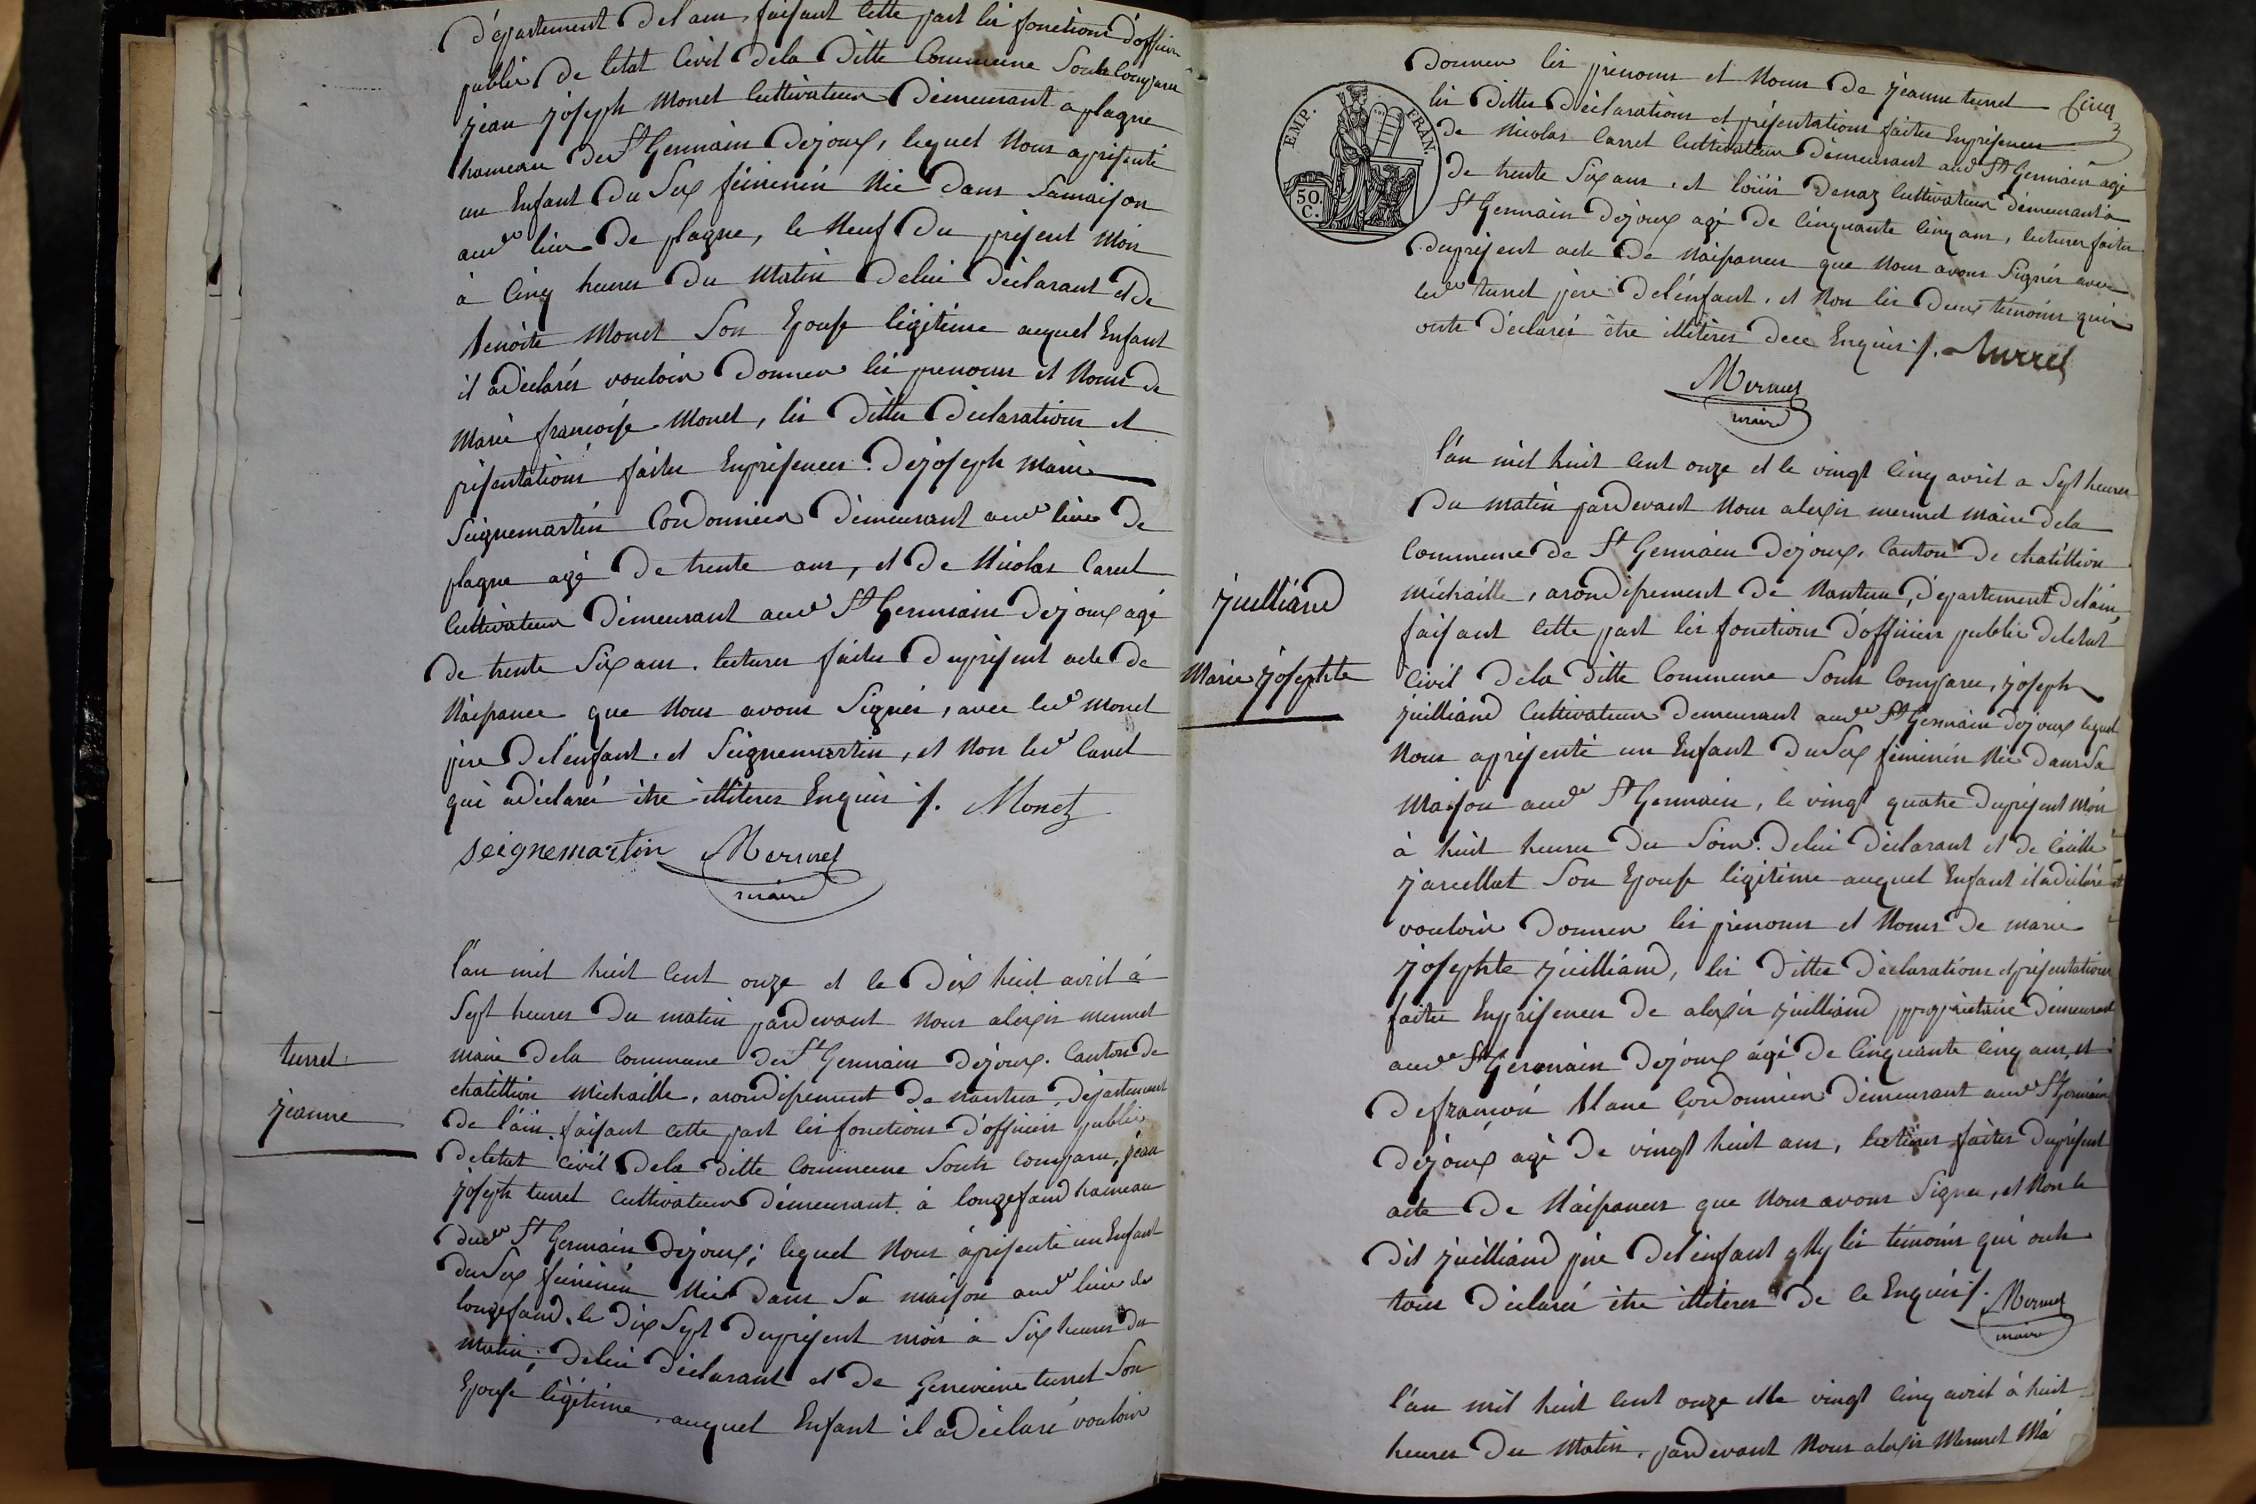 département de l'ain, faisant cette part les fonctions d'officier
public de letat Civil dela ditte Commune Souls Comparu
jean joseph monet Cultivateur démeurant a plagne
hameau de St Germain dejoux, lequel Nous aprisenté
un Enfant du Sex féminin Née dans Samaison
aud lieu de plagne, le Neuf du présent Mois
à Cinq heures du Matin delui déclarant et de
benoite Monet Son Epouse légitime auquel Enfant
il adéclarés vouloir donner les prenoms et Noms de
Marie françoise Monet, les dittes déclarations et
présentations faites Enprésences de joseph Marie
Seignemartin Cordonnier démeurant aud lieu de
plagne agé de trente ans, et de Nicolas Carret
Cultivateur démeurant aud St Germain dejoux agé
de trente Six ans. lectures faites duprésent acte de
Naissance que Nous avons Signés, avec led Monet
père del'enfant. et Seignemartin, et Non led Carret
qui adéclaré être illiteres Enquis ./. Monet
seignemartin Mermet
maire
l'an mil huit Cent onze et le dix huit avril à
Sept heures du matin pardevant Nous alexis mermet
maire dela Commune de St Germain dejoux. Canton de
chatillion michaille, arondissement de nantua, département
de l'ain. faisant cette part les fonctions d'officier public
deletat civil dela ditte Commune Souls Comparu, jean
turrel
jeanne
joseph turrel Cultivateur démeurant à longefand hameau
dud St Germain dejoux; lequel Nous àprisenté un Enfant
du Sex féminin Née dans Sa maison aud lieu de
longefand. le dix Sept duprésent mois à Six heures du
Matin; delui déclarant et de Genevieve turrel Son
Epouse légitime. auquel Enfant il adéclaré vouloir
donner les prénoms et Noms de jeanne turrel Cinq
les dittes déclarations et présentations faites Enprésences
EMP. FRAN.
50. C.
de Nicolas Carret Cultivateur démeurant aud St Germain agé
de trente Six ans. et loüis denaz Cultivateur démeurant à
St Germain dejoux agé de Cinquante Cinq ans, lectures faites
duprésent acte de Naissances que Nous avons Signés avec
led turrel père del'énfant. et Non les deux témoins qui
onts déclarés être illitéres dece Enquis ./. turrel
Mermet
maire
l'an mil huit Cent onze et le vingt Cinq avril a Sept heures
du matin pardevant Nous alexis mermet maire dela
Commune de St Germain dejoux, Canton de chatillion
michaille, arondissement de Nantua, département del'ain,
faisant Cette part les fonctions d'officier public deletat
juilliand
Marie josephte
Civil dela ditte Commune Souls Comparu, joseph
juilliand Cultivateur demeurant aud St Germain dejoux lequel
Nous aprésenté un Enfant du Sex féminin Née dans Sa
Maison aud St Germain, le vingt quatre duprésent Mois
à huit heures du Soir. delui déclarant et de Cécille
jarcellat Son Epouse légitime auquel Enfant il adéclaré
vouloir donner les prénoms et Noms de marie
josephte juilliand, les dittes déclarations et présentations
faites Enprésences de alexis juilliand propriétaire démeurant
aud St Germain dejoux agé de Cinquante Cinq ans, et
de françois blanc Cordonnier démeurant aud St Germain
dejoux agé de vingt huit ans, lectures faites duprésent
acte de Naissances que Nous avons Signés, et Non le
dit juilliand père del'énfant Ny les témoins qui onts
tous déclaré être illiteres de ce Enquis ./. Mermet
maire
l'an mil huit Cent onze et le vingt Cinq avril à huit
heures du Matin, pardevant Nous alexis Mermet Ma